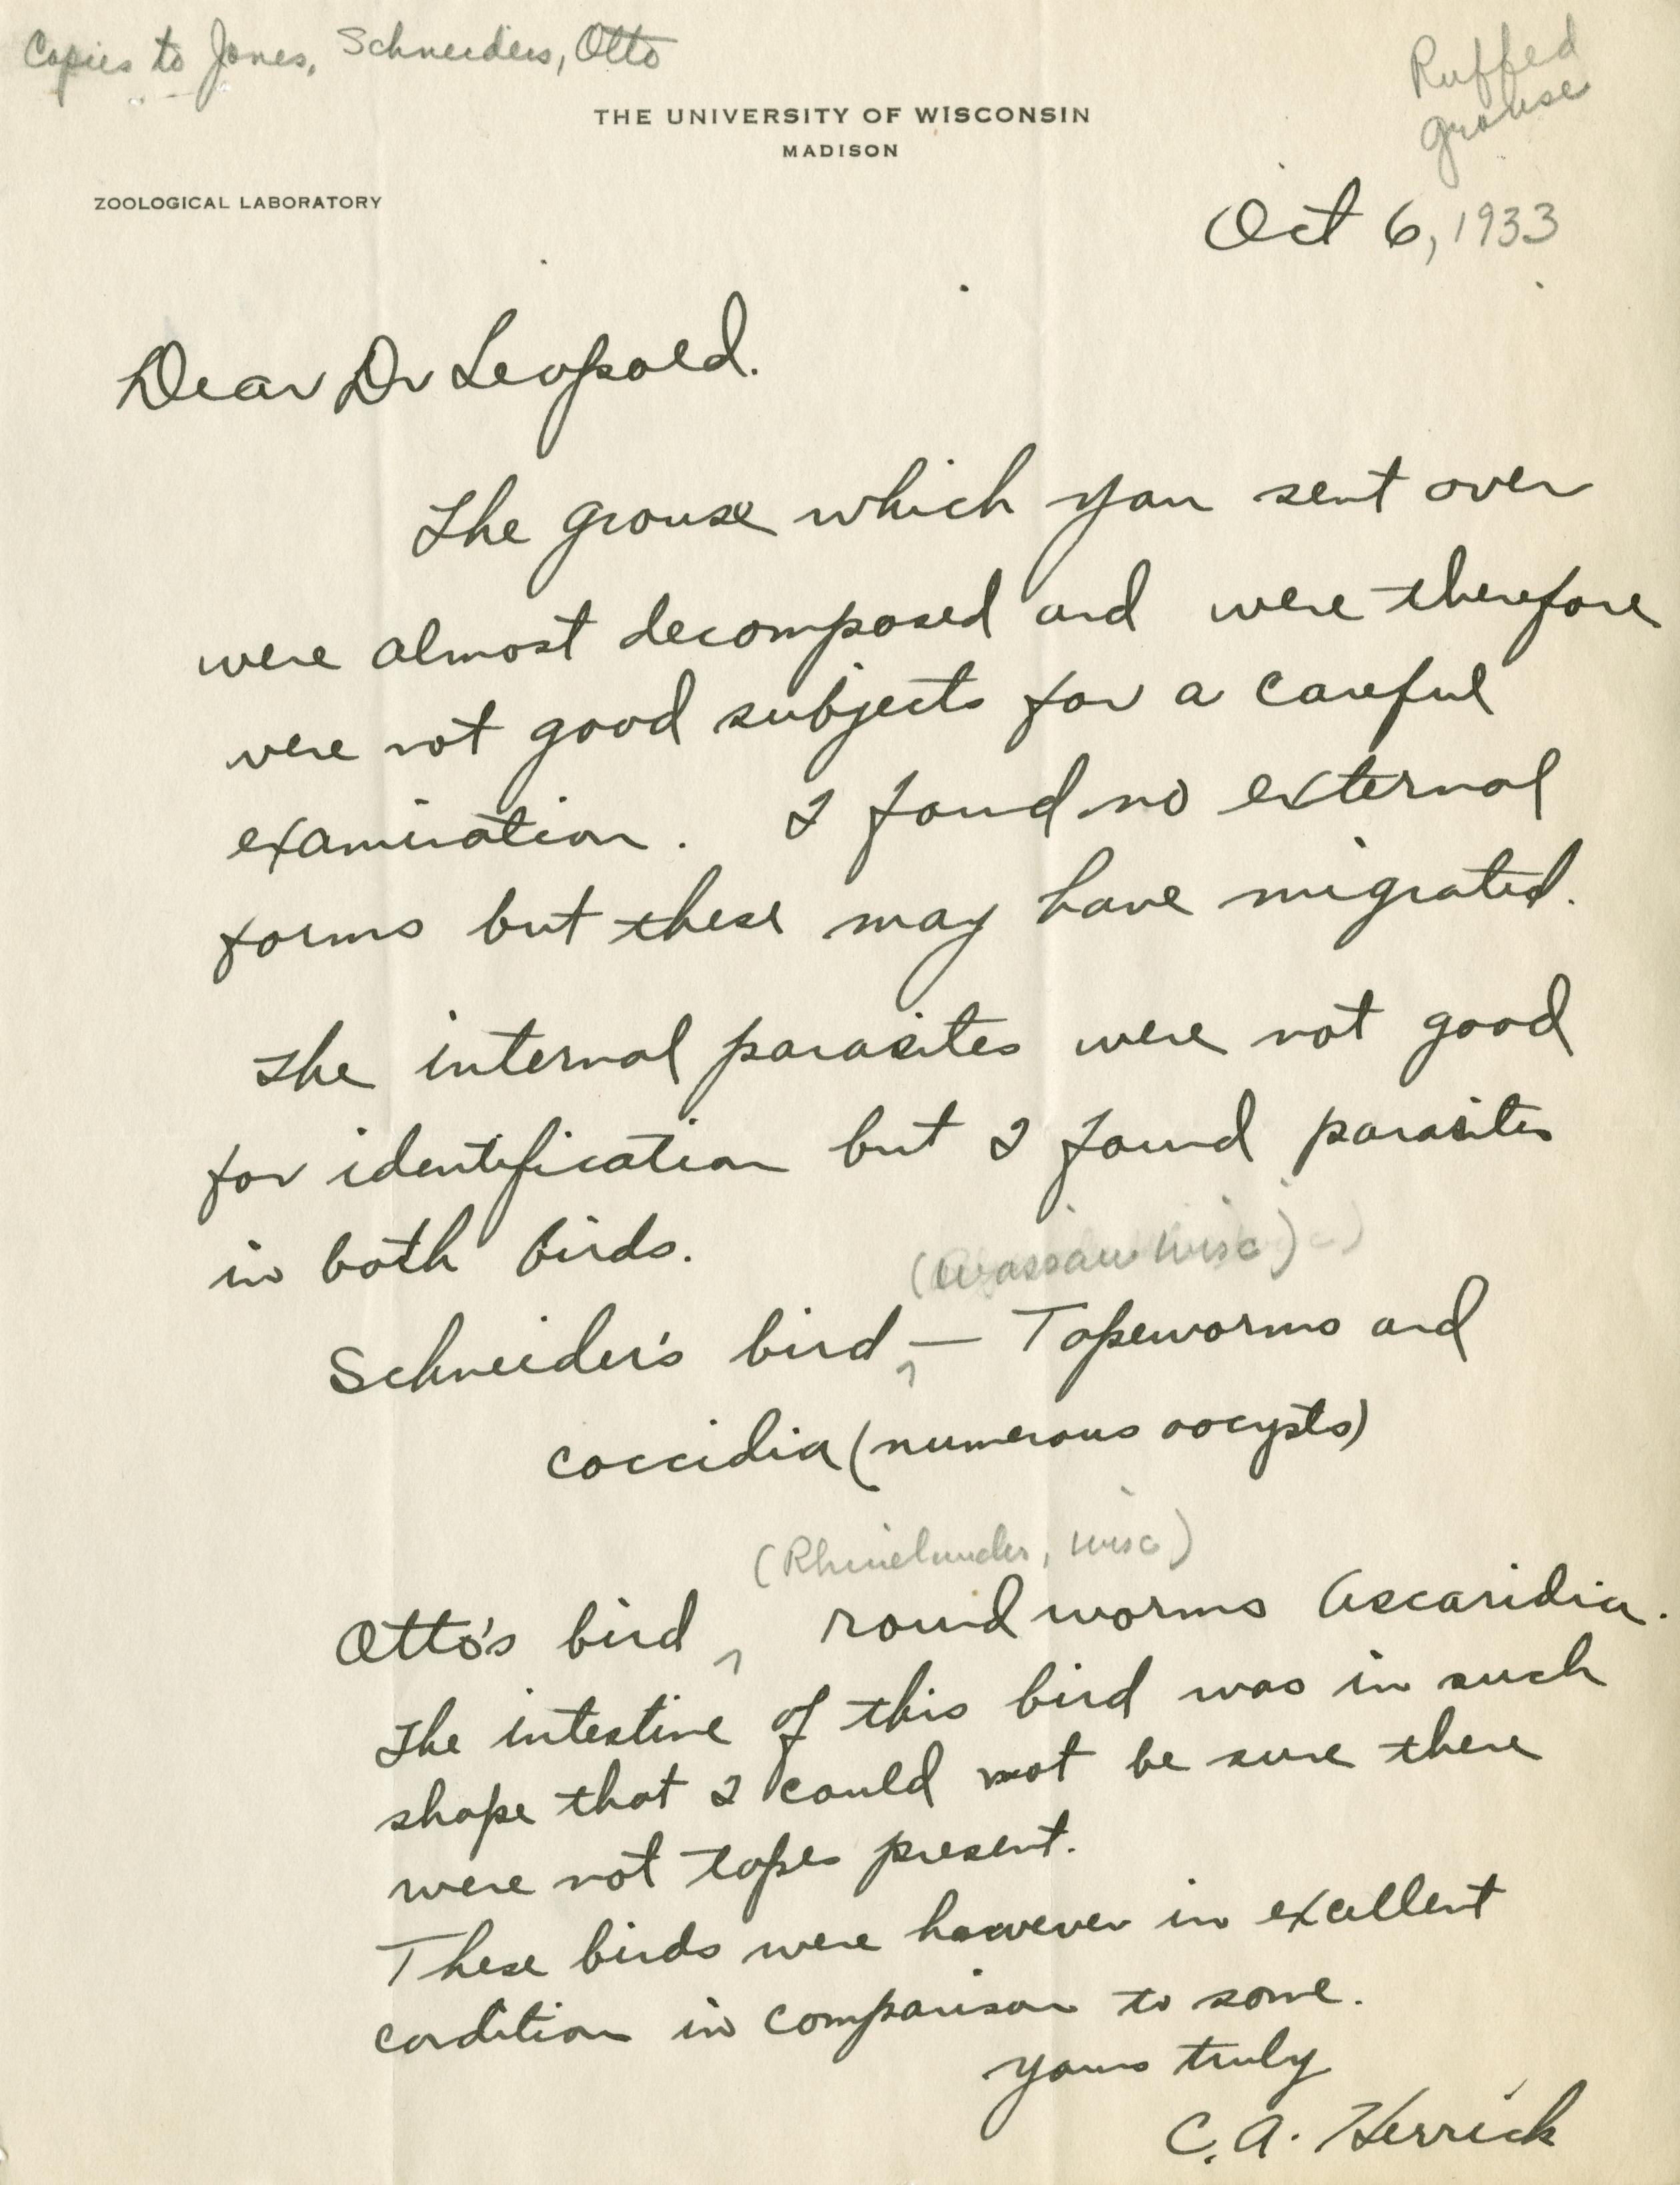 Copies to Jones, Schneiders, Otto
Ruffed
grouse
THE UNIVERSITY OF WISCONSIN
MADISON
ZOOLOGICAL LABORATORY
Oct 6, 1933
Dear Dr Leopold.
The grouse which you sent over
were almost decomposed and were therefore
were not good subjects for a careful
examination. I found no external
forms but these may have migrated.
The internal parasites were not good
for identification but I found parasites
in both birds.
(Wassau Wisc)
Schneider's bird — Tapeworms and
coccidia (numerous oocysts)
(Rhinelander, Wisc)
Otto's bird roundworms Ascaridia.
The intestine of this bird was in such
shape that I could not be sure there
were not tapes present.
These birds were however in excellent
condition in comparison to some.
Yours truly
C. A. Herrick